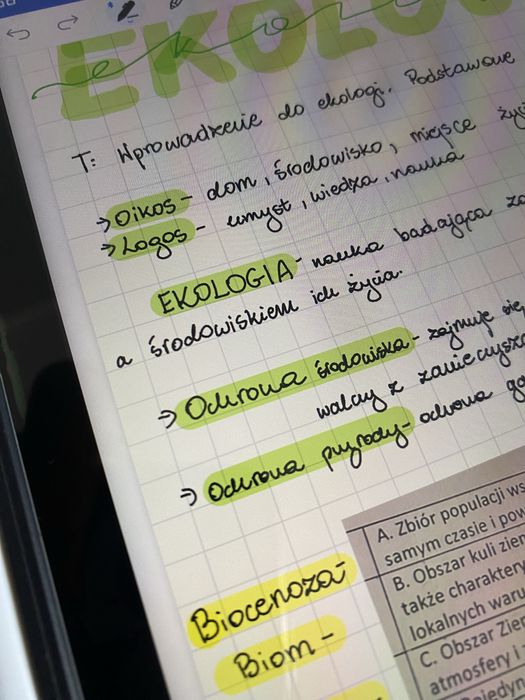 EKOLOG
eko
T: Wprowadzenie do ekologi. Podstawowe
→ Oikos - dom, środowisko, miejsce życi
→ Logos - umysł, wiedza, nauka
EKOLOGIA - nauka badająca za
a środowiskiem ich życia.
→ Ochrona środowiska - zajmuje się
walczy z zanieczyszcz
→ Ochrona przyrody - ochrona
Biocenoza -
Biom -
A. Zbiór populacji ws
samym czasie i pow
B. Obszar kuli ziem
także charaktery
lokalnych waru
C. Obszar Ziem
atmosfery i